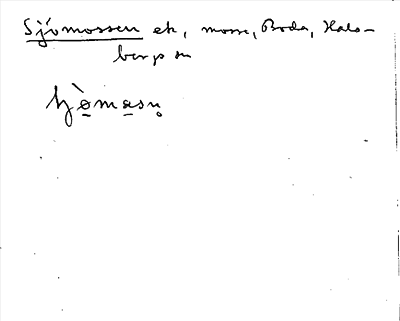 Sjömossen ek, mosse, Boda, Hals-
bergs sn
ʃjò̱ma̱sn̥